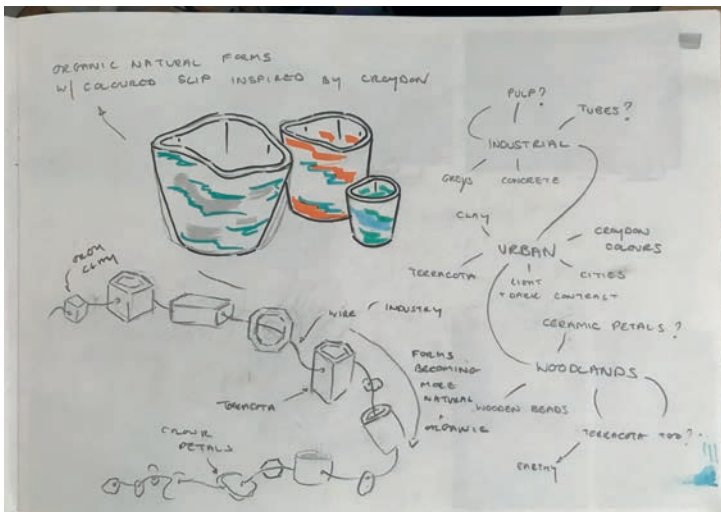 ORGANIC NATURAL FORMS
W/ COLOURED SLIP INSPIRED BY CROYDON
PULP?
TUBES?
INDUSTRIAL
GREYS
CONCRETE
CLAY
CROYDON
COLOURS
URBAN
TERRACOTA
LIGHT
+ DARK CONTRAST
CITIES
CERAMIC PETALS?
WOODLANDS
WOODEN BEADS
TERRACOTA TOO?
EARTHY
CLAY
WIRE / INDUSTRY
FORMS
BECOMING
MORE
NATURAL
+
ORGANIC
TERRACOTA
COLOUR
PETALS